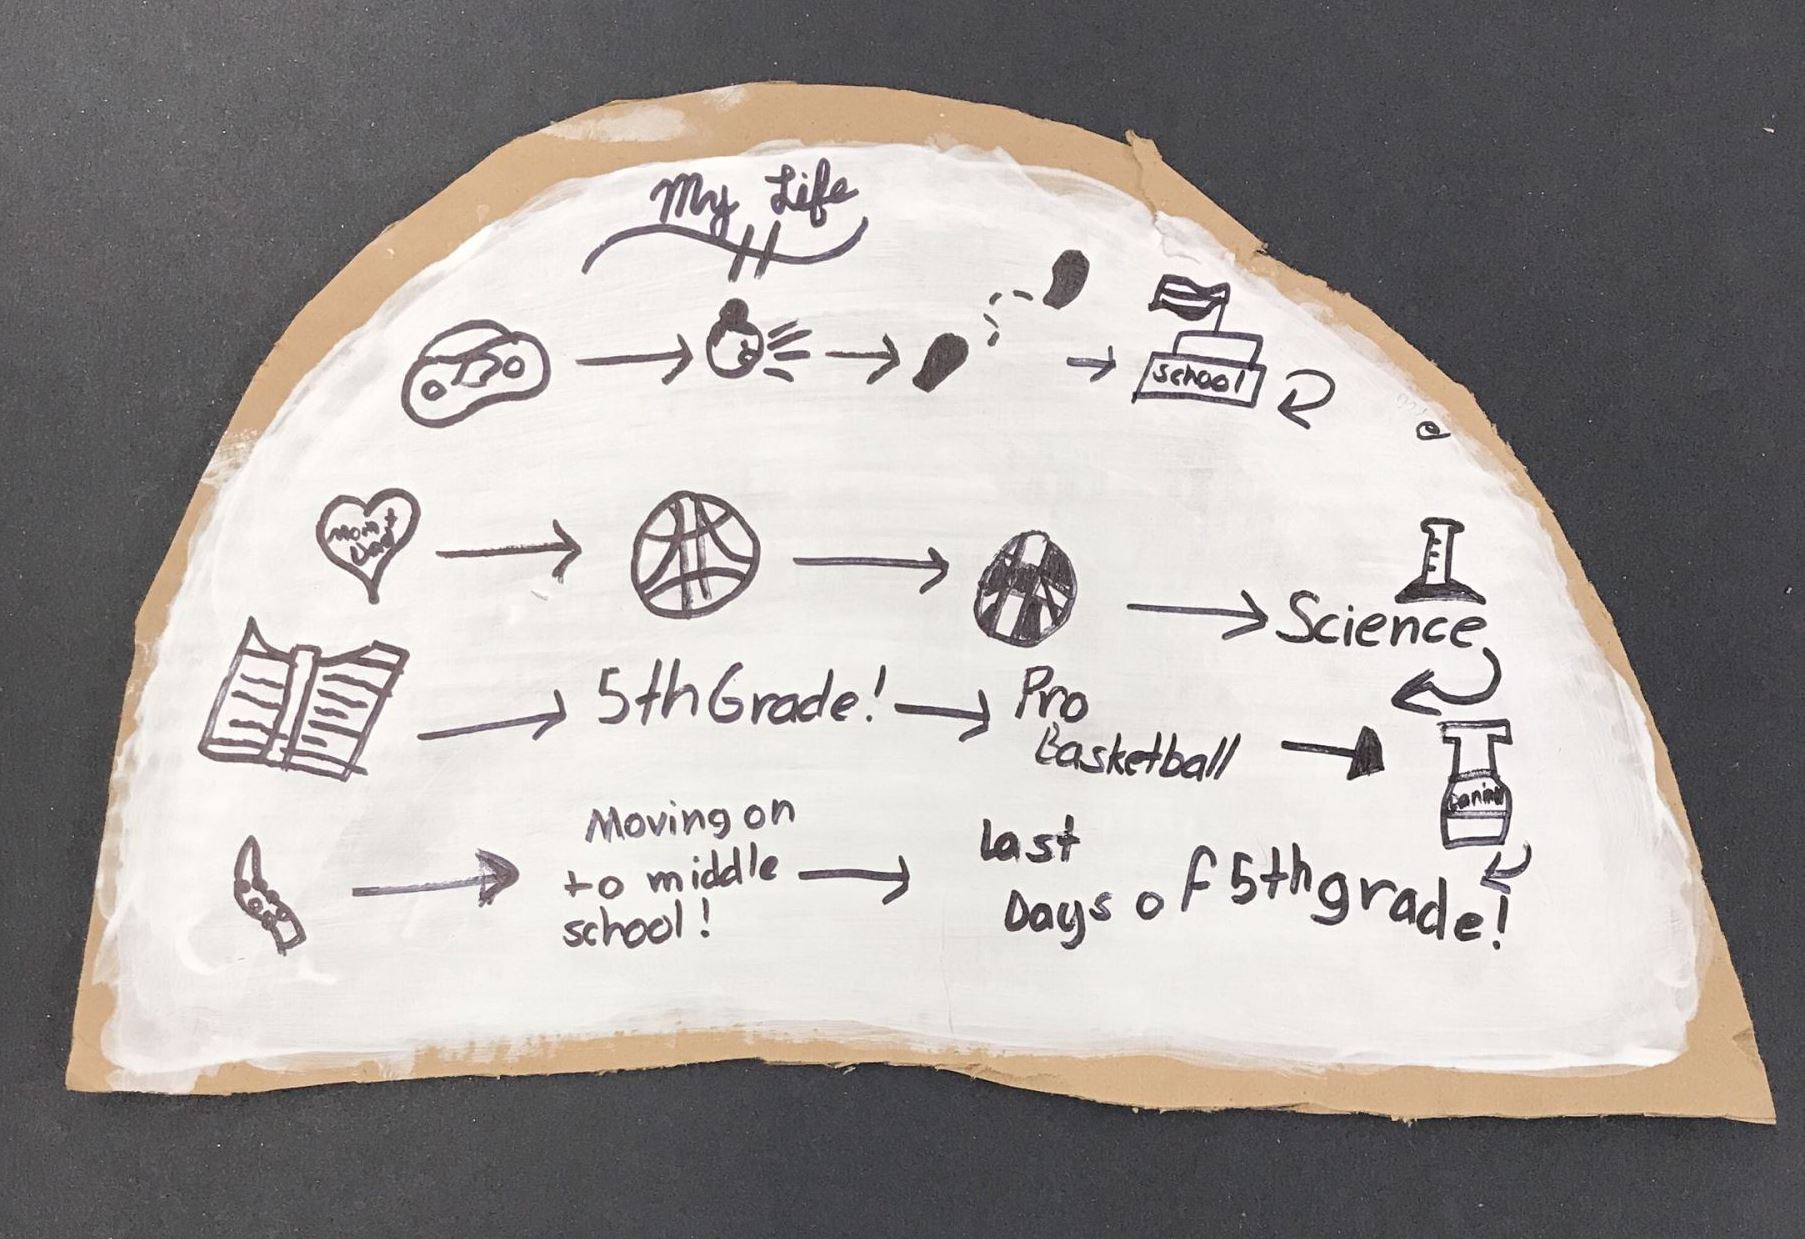 My Life
school
Mom +
Dad
Science
5th Grade!
Pro
Basketball
Moving on
to middle
school!
Last
Days of 5th grade!